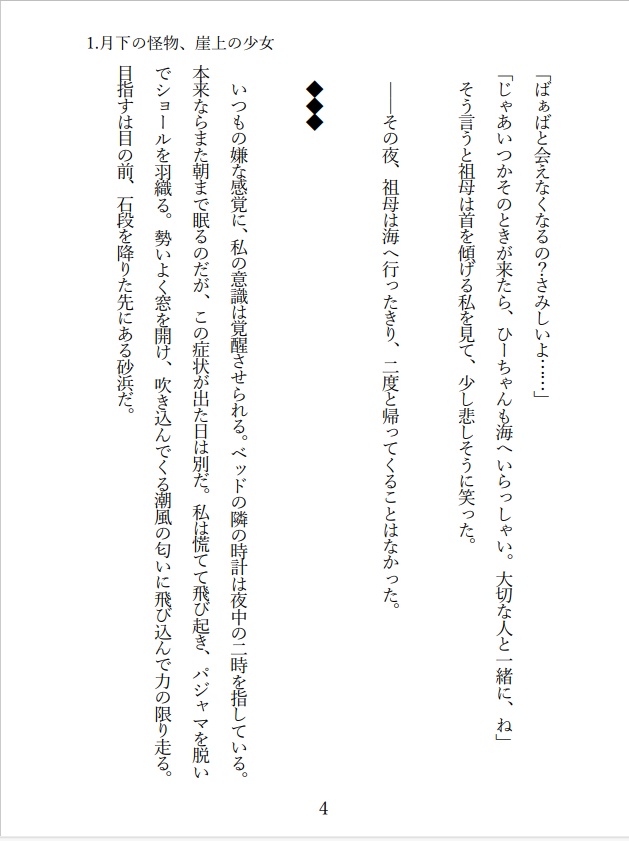 1.月下の怪物、崖上の少女
「ばぁばと会えなくなるの？さみしいよ……」
「じゃあいつかそのときが来たら、ひーちゃんも海へいらっしゃい。大切な人と一緒に、ね」
そう言うと祖母は首を傾げる私を見て、少し悲しそうに笑った。
――その夜、祖母は海へ行ったきり、二度と帰ってくることはなかった。
◆◆◆
いつもの嫌な感覚に、私の意識は覚醒させられる。ベッドの隣の時計は夜中の二時を指している。
本来ならまた朝まで眠るのだが、この症状が出た日は別だ。私は慌てて飛び起き、パジャマを脱い
でショールを羽織る。勢いよく窓を開け、吹き込んでくる潮風の匂いに飛び込んで力の限り走る。
目指すは目の前、石段を降りた先にある砂浜だ。
4